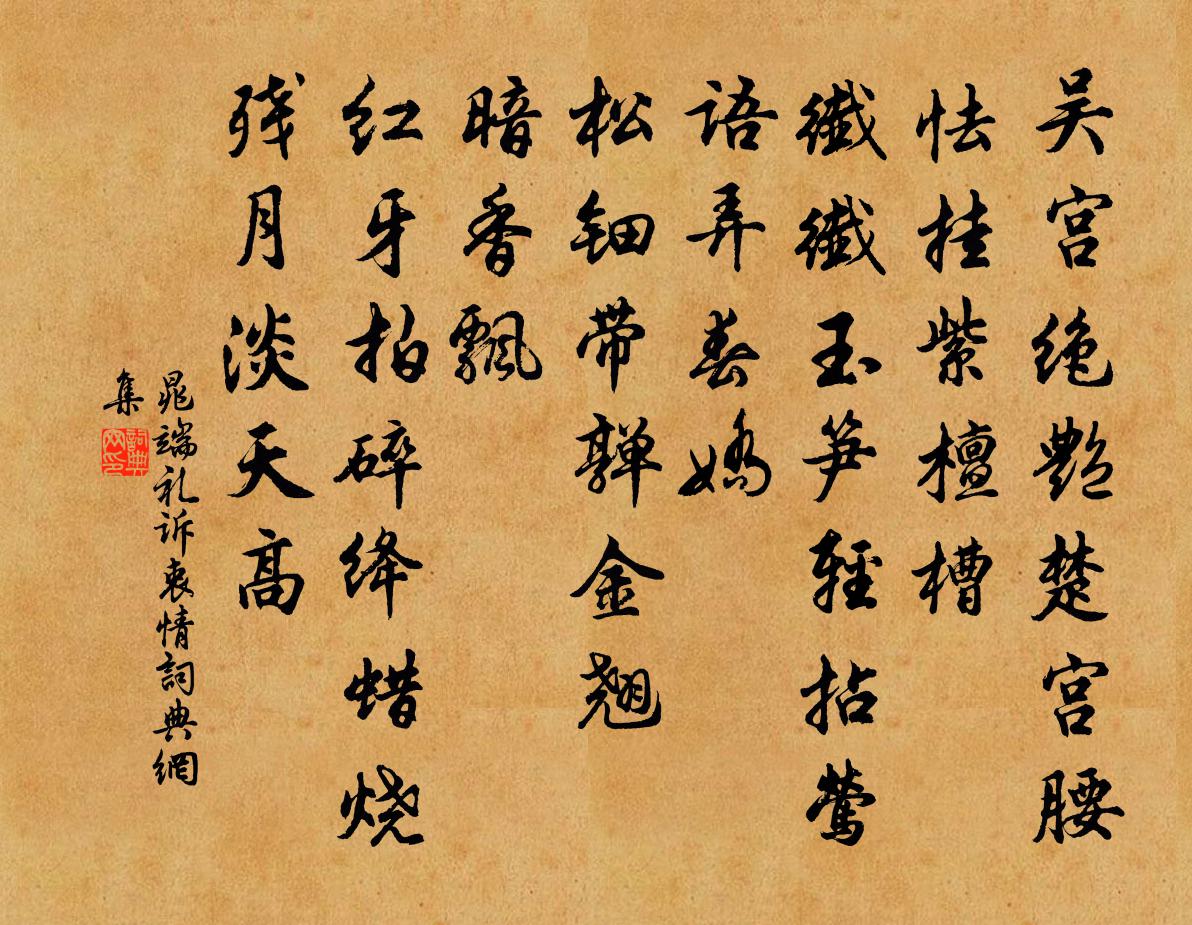 吴宫绝艳楚宫腰
怯挂紫檀槽
纤纤玉笋轻拈莺
语弄春娇
松钿带亸金翘
暗香飘
红牙拍碎绛蜡烧
残月淡天高
晁端礼诉衷情詞典網
集
詞典网印